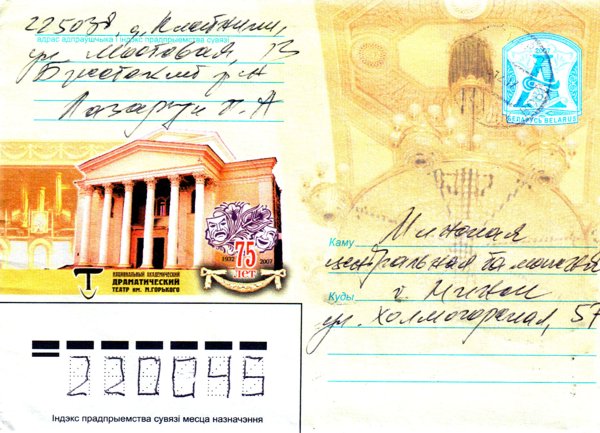 225038 д. Клейники,
адрас адпраўшчыка і індэкс прадпрыемства сувязі
ул. Мостовая, 13
Брестский р-н
Лазарук П. А
2007
БЕЛАРУСЬ BELARUS
1932 75 2007
ЛЕТ
НАЦИОНАЛЬНЫЙ АКАДЕМИЧЕСКИЙ
ДРАМАТИЧЕСКИЙ
ТЕАТР ИМ. М.ГОРЬКОГО
Каму Минская
центральная таможня
Куды г. Минск
ул. Холмогорская, 57
220045
Індэкс прадпрыемства сувязі месца назначэння